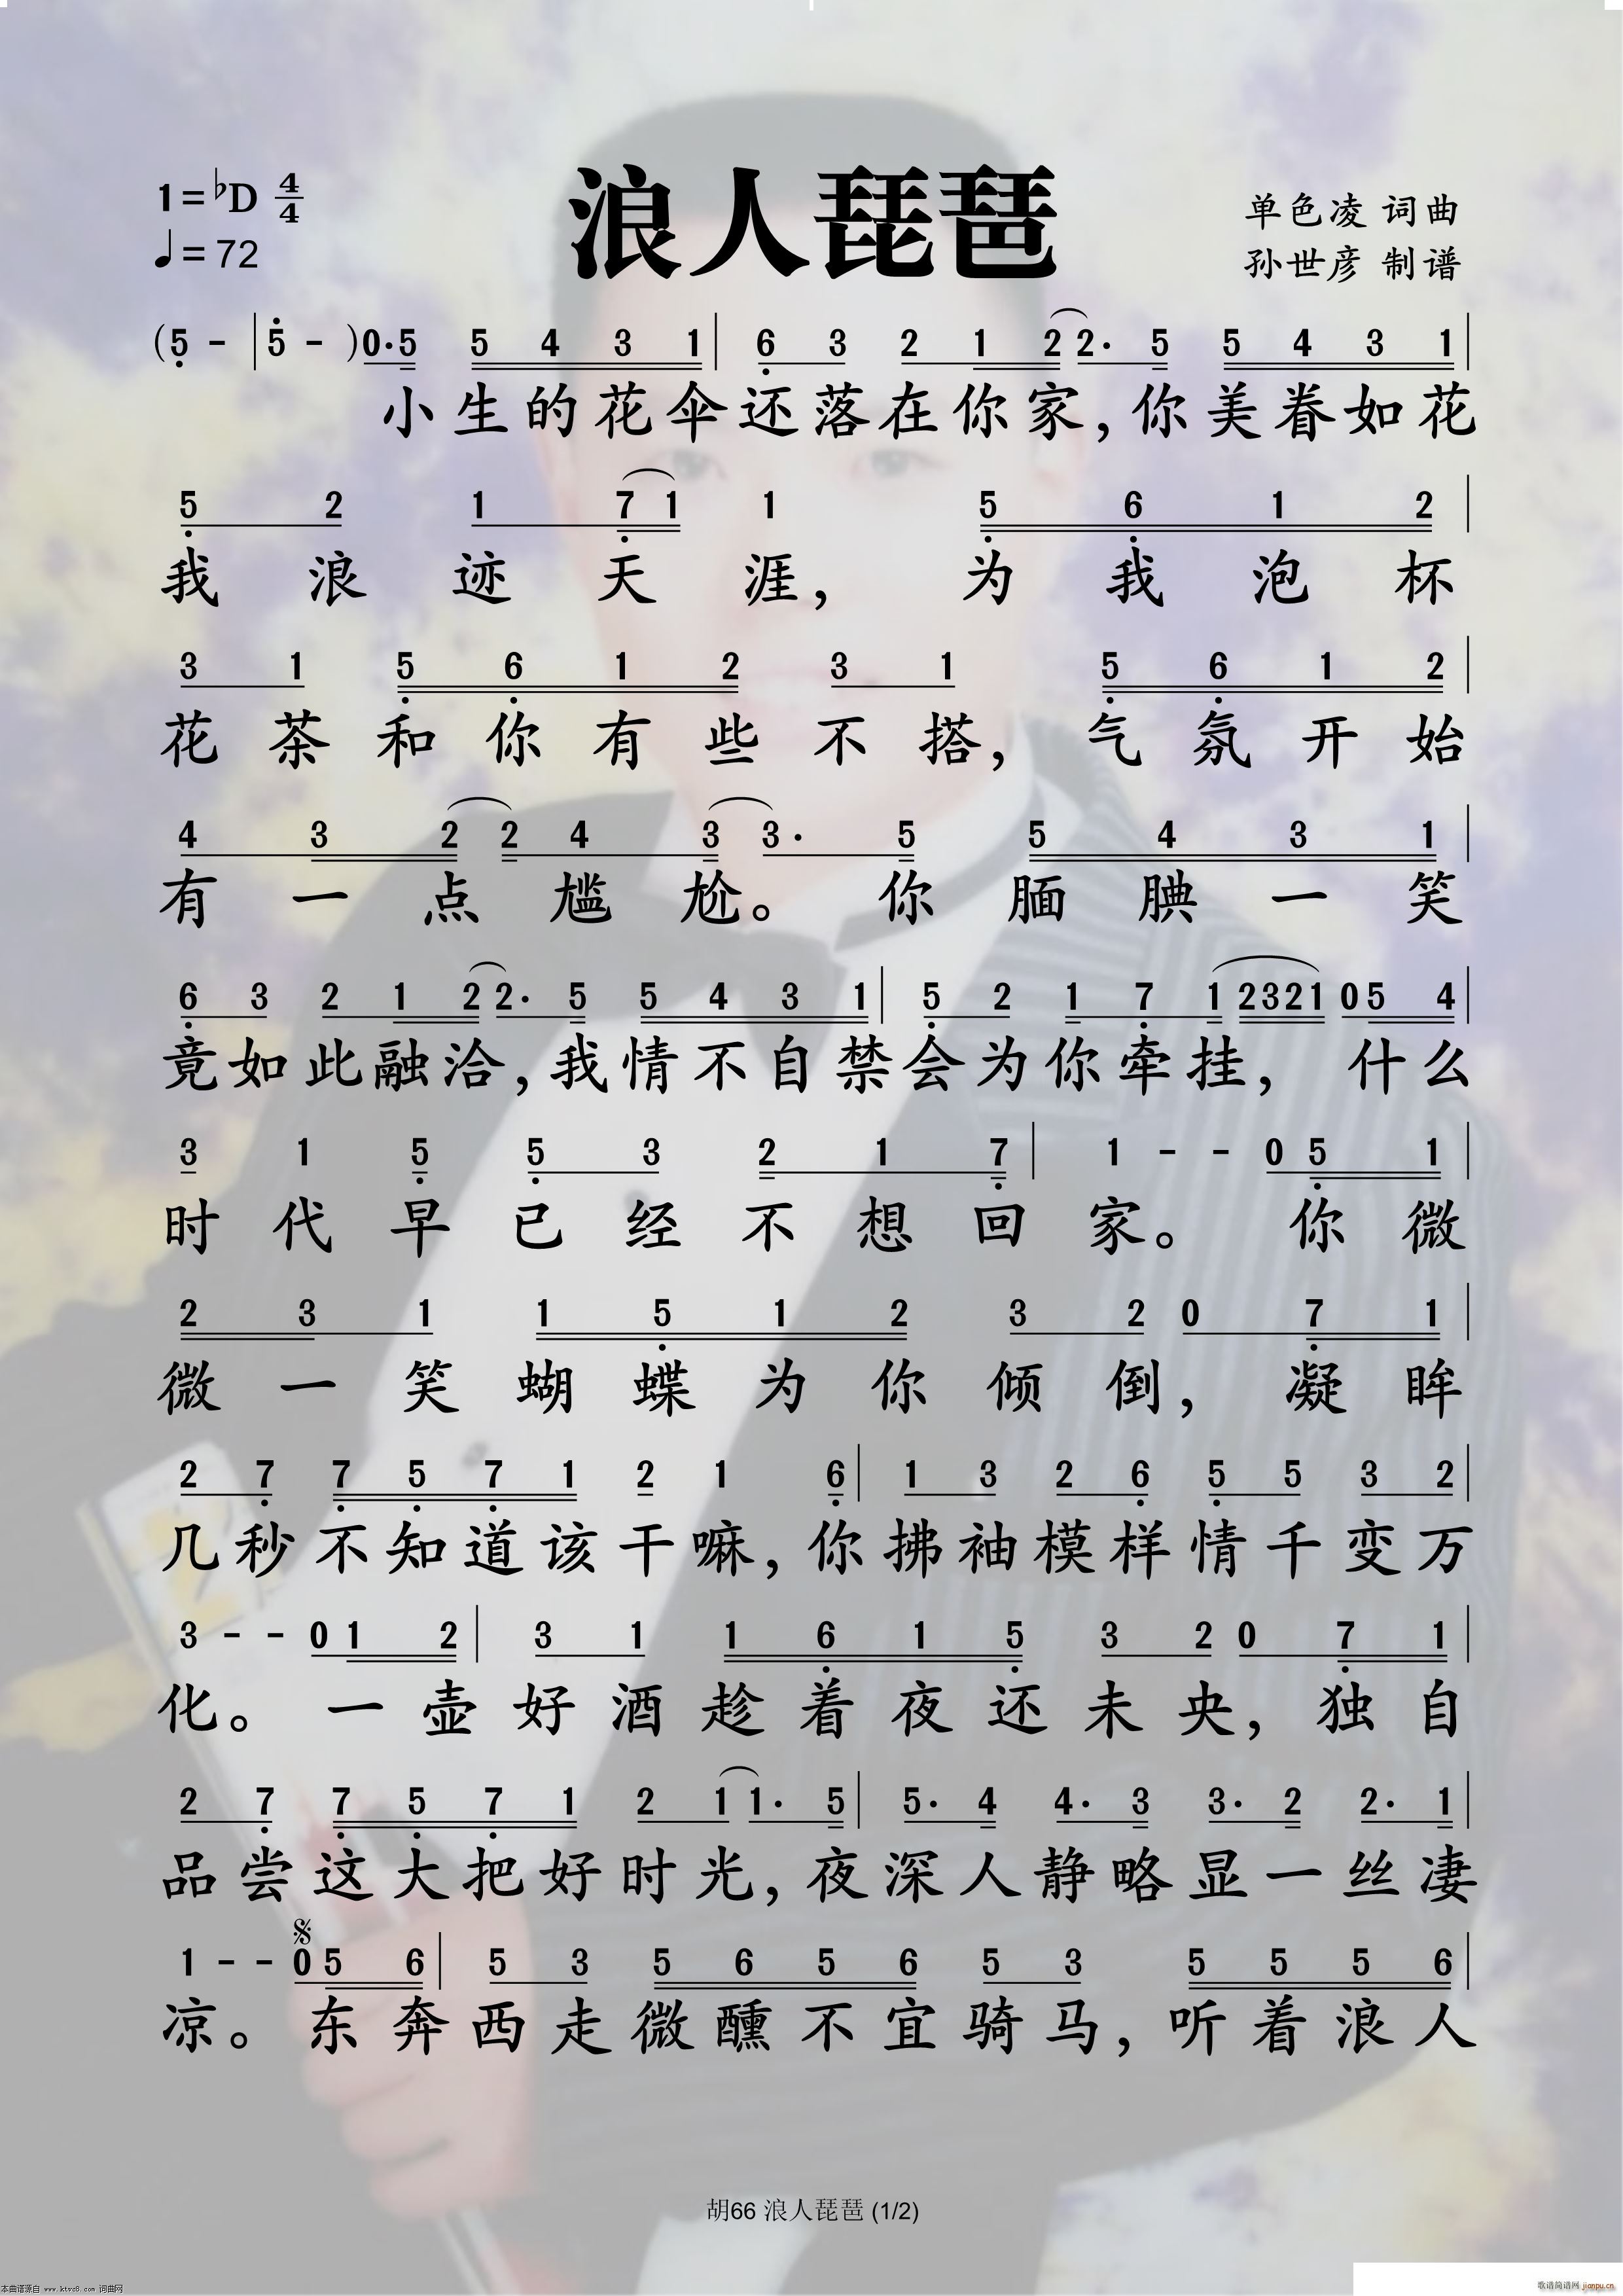 浪人琵琶
1=♭D 4/4
♩=72
单色凌 词曲
孙世彦 制谱
(5 - | 5 - )0·5 5 4 3 1 | 6 3 2 1 2 2· 5 5 4 3 1 |
小生的花伞还落在你家,你美眷如花
5 2 1 7 1 1 5 6 1 2 |
我浪迹天涯,为我泡杯
3 1 5 6 1 2 3 1 5 6 1 2 |
花茶和你有些不搭,气氛开始
4 3 2 2 4 3 3· 5 5 4 3 1 |
有一点尴尬。你腼腆一笑
6 3 2 1 2 2· 5 5 4 3 1 | 5 2 1 7 1 2321 05 4 |
竟如此融洽,我情不自禁会为你牵挂,什么
3 1 5 5 3 2 1 7 | 1 - - 0 5 1 |
时代早已经不想回家。你微
2 3 1 1 5 1 2 3 2 0 7 1 |
微一笑蝴蝶为你倾倒,凝眸
2 7 7 5 7 1 2 1 6 | 1 3 2 6 5 5 3 2 |
几秒不知道该干嘛,你拂袖模样情千变万
3 - - 0 1 2 | 3 1 1 6 1 5 3 2 0 7 1 |
化。一壶好酒趁着夜还未央,独自
2 7 7 5 7 1 2 1 1· 5 | 5· 4 4· 3 3· 2 2· 1 |
品尝这大把好时光,夜深人静略显一丝凄
1 - - 0 5 6 | 5 3 5 6 5 6 5 3 5 5 5 6 |
凉。东奔西走微醺不宜骑马,听着浪人
胡66 浪人琵琶 (1/2)
本曲谱源自 www.ktvc8.com 词曲网
歌谱简谱网 jianpu.cn